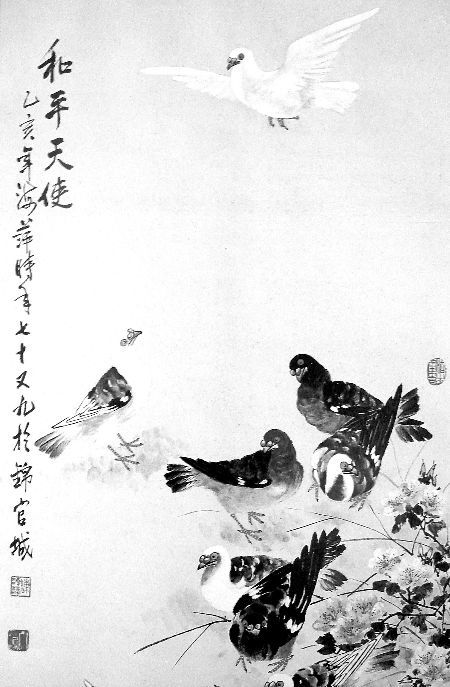 和平天使
乙亥年海萍時年七十又九於錦官城